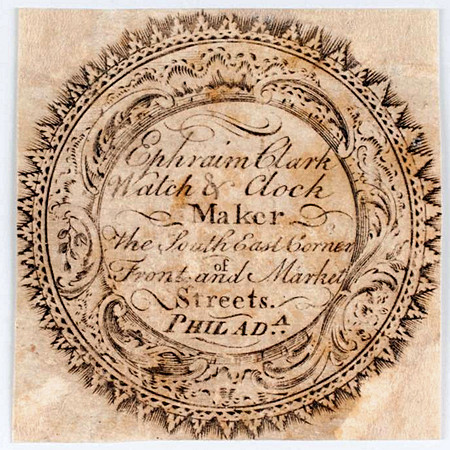 Ephraim Clark
Watch & Clock
Maker
the South East Corner
of
Front and Market
Streets.
PHILADA.